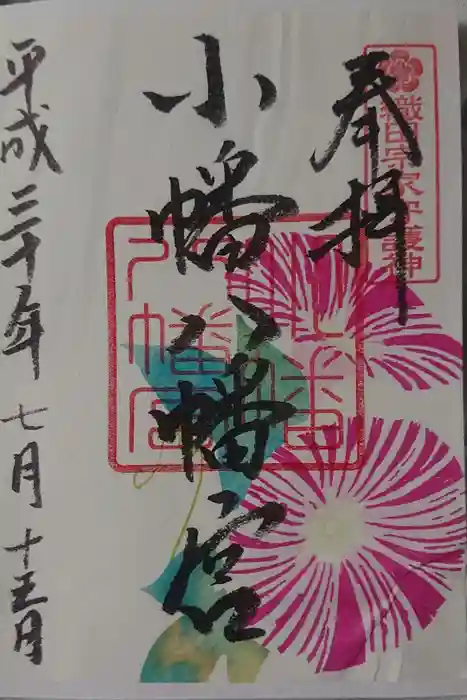 織田宗家守護神
奉拝
小幡八幡宮
小幡
八幡宮
平成三十年 七月 十五日